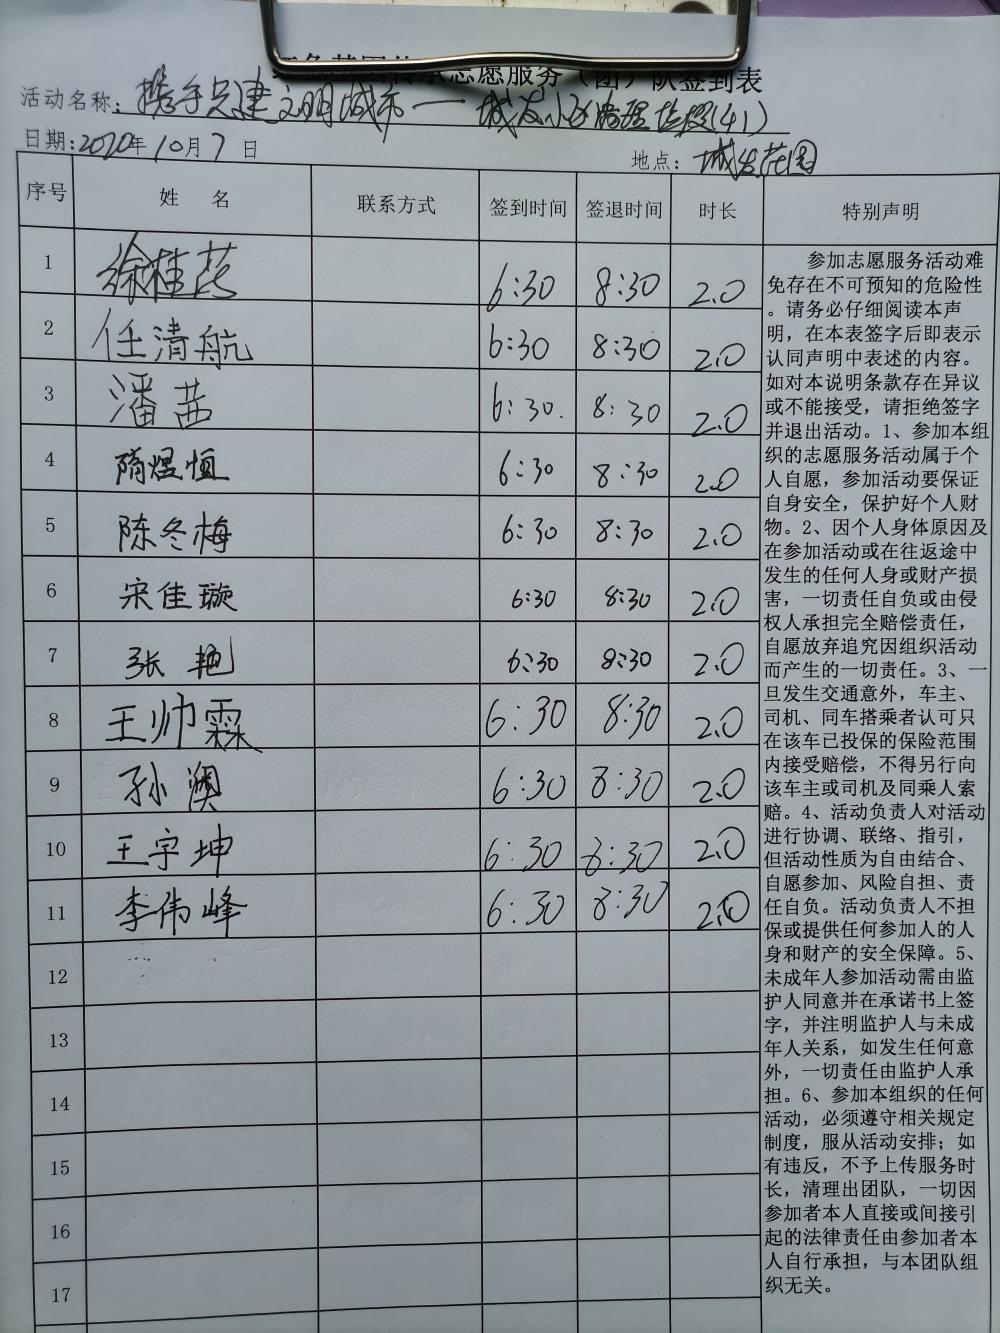 志愿服务（团）队签到表
活动名称：携手共建文明城市一城发小区清理垃圾(41)
日期:2020年10月7日
地点：城发花园
序号 姓名 联系方式 签到时间 签退时间 时长 特别声明
1 徐桂芹 6:30 8:30 2.0
2 任清航 6:30 8:30 2.0
3 潘茜 6:30. 8:30 2.0
4 隋煜恒 6:30 8:30 2.0
5 陈冬梅 6:30 8:30 2.0
6 宋佳璇 6:30 8:30 2.0
7 张艳 6:30 8:30 2.0
8 王帅霖 6:30 8:30 2.0
9 孙澳 6:30 8:30 2.0
10 王宇坤 6:30 8:30 2.0
11 李伟峰 6:30 8:30 2.0
12
13
14
15
16
17
参加志愿服务活动难
免存在不可预知的危险性
。请务必仔细阅读本声
明，在本表签字后即表示
认同声明中表述的内容。
如对本说明条款存在异议
或不能接受，请拒绝签字
并退出活动。1、参加本组
织的志愿服务活动属于个
人自愿，参加活动要保证
自身安全，保护好个人财
物。2、因个人身体原因及
在参加活动或在往返途中
发生的任何人身或财产损
害，一切责任自负或由侵
权人承担完全赔偿责任，
自愿放弃追究因组织活动
而产生的一切责任。3、一
旦发生交通意外，车主、
司机、同车搭乘者认可只
在该车已投保的保险范围
内接受赔偿，不得另行向
该车主或司机及同乘人索
赔。4、活动负责人对活动
进行协调、联络、指引，
但活动性质为自由结合、
自愿参加、风险自担、责
任自负。活动负责人不担
保或提供任何参加人的人
身和财产的安全保障。5、
未成年人参加活动需由监
护人同意并在承诺书上签
字，并注明监护人与未成
年人关系，如发生任何意
外，一切责任由监护人承
担。6、参加本组织的任何
活动，必须遵守相关规定
制度，服从活动安排；如
有违反，不予上传服务时
长，清理出团队，一切因
参加者本人直接或间接引
起的法律责任由参加者本
人自行承担，与本团队组
织无关。